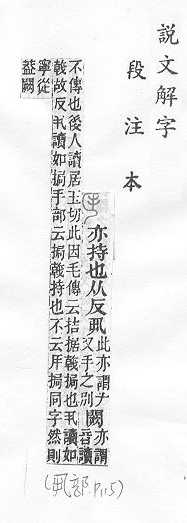 說文解字
段注本
亦持也从反丮
此亦謂ナ
又手之別
闕
亦謂
音讀
不傳也後人讀居玉切此因毛傳云拮据㦸挶也丮讀如
㦸故反丮讀如挶手部云挶㦸持也不云挶同字然則
寧從
葢闕
(丮部.P.115)